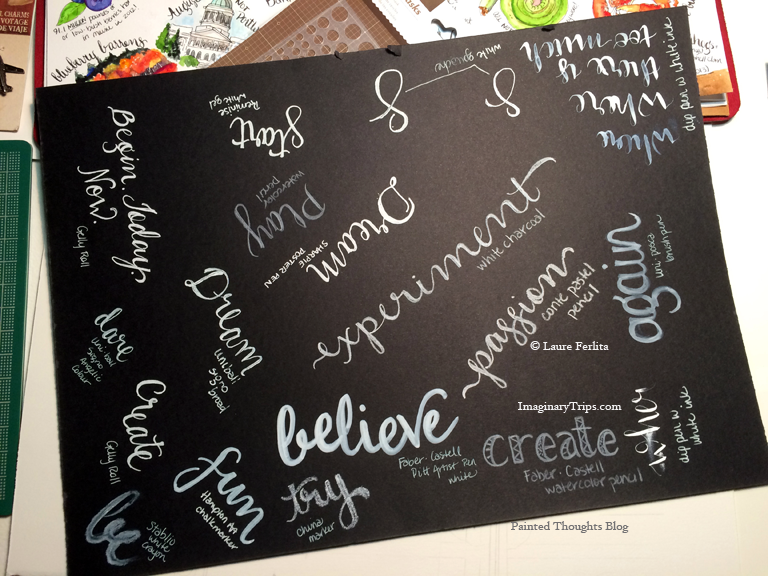 CHARMS
VOYAGE
DE VIAJE
blueberry barrens
August
start
Reminise
white gel
white gouache
S
S
when
where
there is
too much
dip pen w white ink
Begin. Today.
Now?
Gelly Roll
Play
watercolor
pencil
Dream
SHARPIE
POSTER PEN
experiment
white charcoal
again
uni-posca
brush pen
dare
Uni-ball
Signo
Angelic
Colour
Dream
Uniball
signo
broad
passion
conte pastel
pencil
© Laure Ferlita
ImaginaryTrips.com
Create
Gelly Roll
believe
Faber-Castell
Pitt Artist Pen
white
create
Faber-Castell
watercolor pencil
when
dip pen w
white ink
fun
chalkmarker
try
china
marker
be
Stabilo
white
crayon
Painted Thoughts Blog